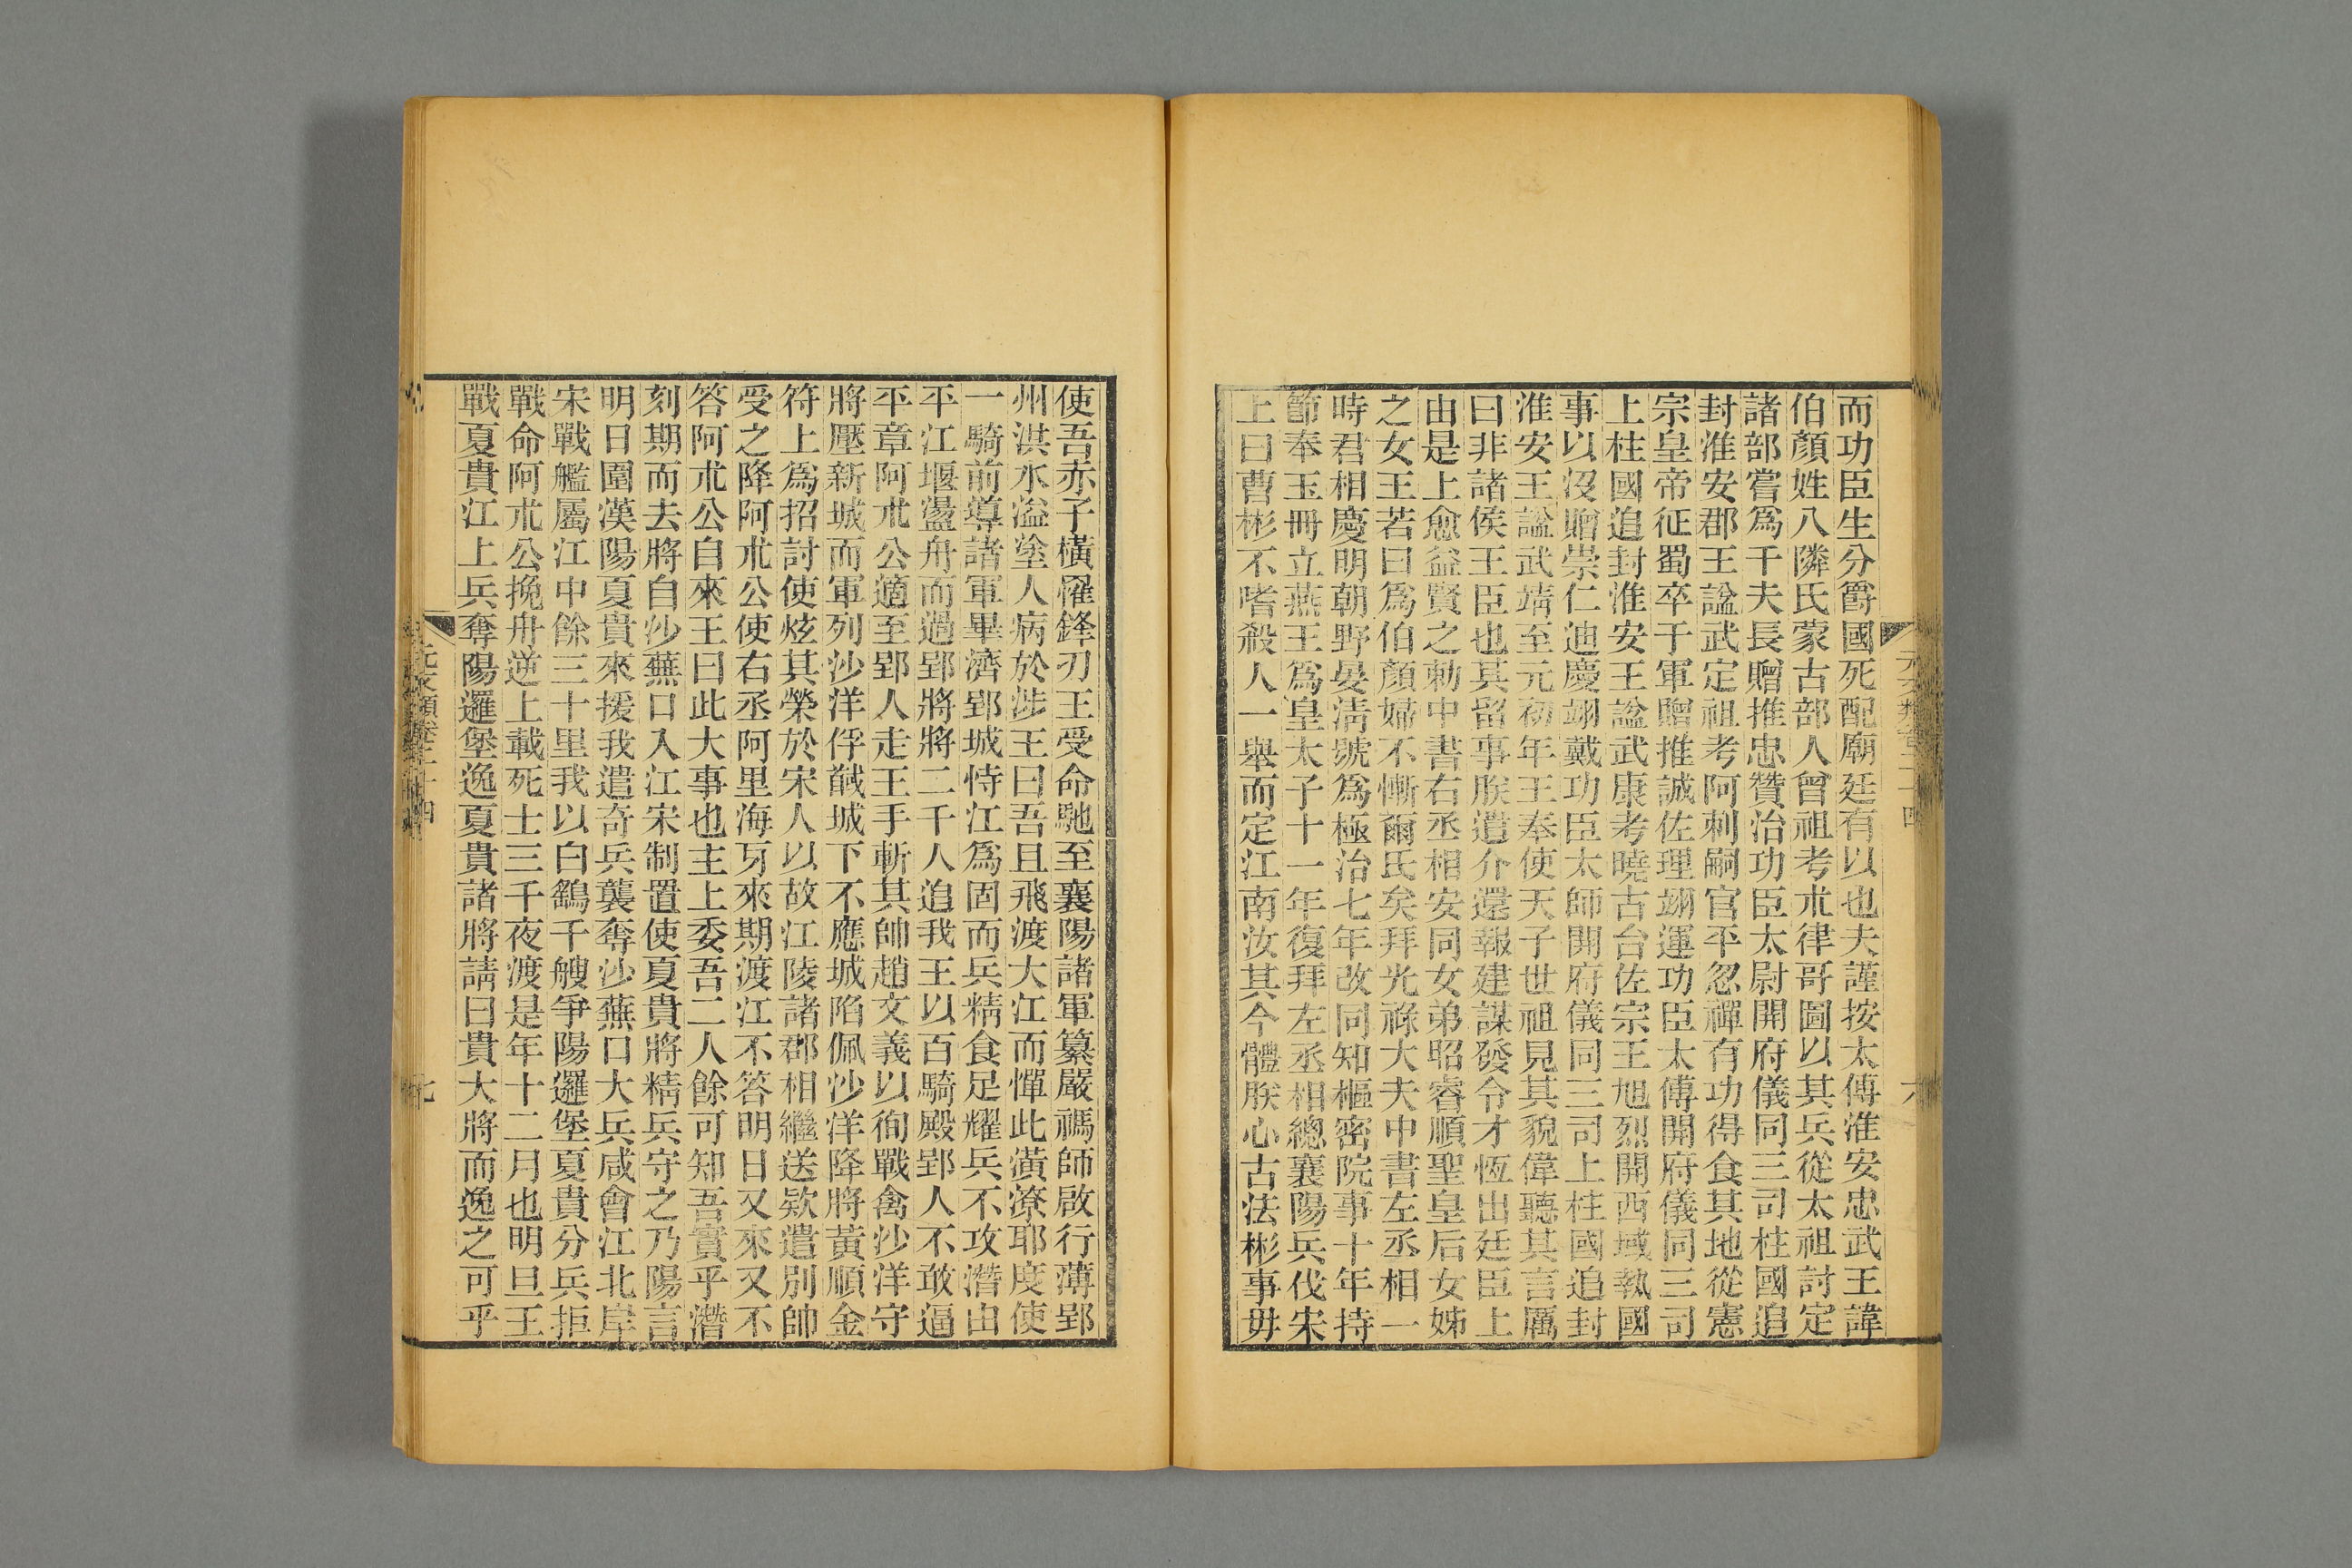 而功臣生分爵國死配廟廷有以也夫謹按太傅淮安忠武王諱
伯顏姓八隣氏蒙古部人曾祖考朮律哥圖以其兵從太祖討定
諸部嘗爲千夫長贈推忠贊治功臣太尉開府儀同三司柱國追
封淮安郡王諡武定祖考阿剌嗣官平忽禪有功得食其地從憲
宗皇帝征蜀卒于軍贈推誠佐理翊運功臣太傅開府儀同三司
上柱國追封淮安王諡武康考曉古台佐宗王旭烈開西域執國
事以沒贈崇仁迪慶翊戴功臣太師開府儀同三司上柱國追封
淮安王諡武靖至元初年王奉使天子世祖見其貌偉聽其言厲
曰非諸侯王臣也其留事朕遣介還報建謀發令才恆出廷臣上
由是上愈益賢之勅中書右丞相安同女弟昭睿順聖皇后女姊
之女王若曰爲伯顏婦不慚爾氏矣拜光祿大夫中書左丞相一
時君相慶明朝野晏淸號爲極治七年改同知樞密院事十年持
節奉玉冊立燕王爲皇太子十一年復拜左丞相總襄陽兵伐宋
上曰曹彬不嗜殺人一舉而定江南汝其今體朕心古法彬事毋
使吾赤子橫罹鋒刃王受命馳至襄陽諸軍纂嚴禡師啟行薄郢
州淇水溢塗人病於涉王曰吾且飛渡大江而憚此潢潦耶度使
一騎前導諸軍畢濟郢城恃江爲固而兵精食足耀兵不攻潛由
平江堰盪舟而過郢將將二千人追我王以百騎殿郢人不敢逼
平章阿朮公適至郢人走王手斬其帥趙文義以徇戰禽沙洋守
將壓新城而軍列沙洋俘馘城下不應城陷佩沙洋降將黃順金
符上爲招討使炫其榮於宋人以故江陵諸郡相繼送欵遣別帥
受之降阿朮公使右丞阿里海牙來期渡江不答明日又來又不
答阿朮公自來王曰此大事也主上委吾二人餘可知吾實乎潛
刻期而去將自沙蕪口入江宋制置使夏貴將精兵守之乃陽言
明日圍漢陽夏貴來援我遣奇兵襲奪沙蕪口大兵咸會江北岸
宋戰艦屬江中餘三十里我以白鷂千艘爭陽邏堡夏貴分兵拒
戰命阿朮公挽舟逆上載死士三千夜渡是年十二月也明旦王
戰夏貴江上兵奪陽邏堡逸夏貴諸將請曰貴大將而逸之可乎